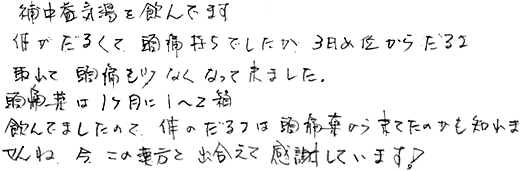 補中益気湯を飲んでます
体がだるくて、頭痛持ちでしたが、3日め位からだるさ
取れて 頭痛も少なくなって来ました。
頭痛薬は1ヶ月に1〜2箱
飲んでましたので、体のだるさは頭痛薬から来てたのかも知れま
せんね、今、この漢方と出合えて感謝しています!